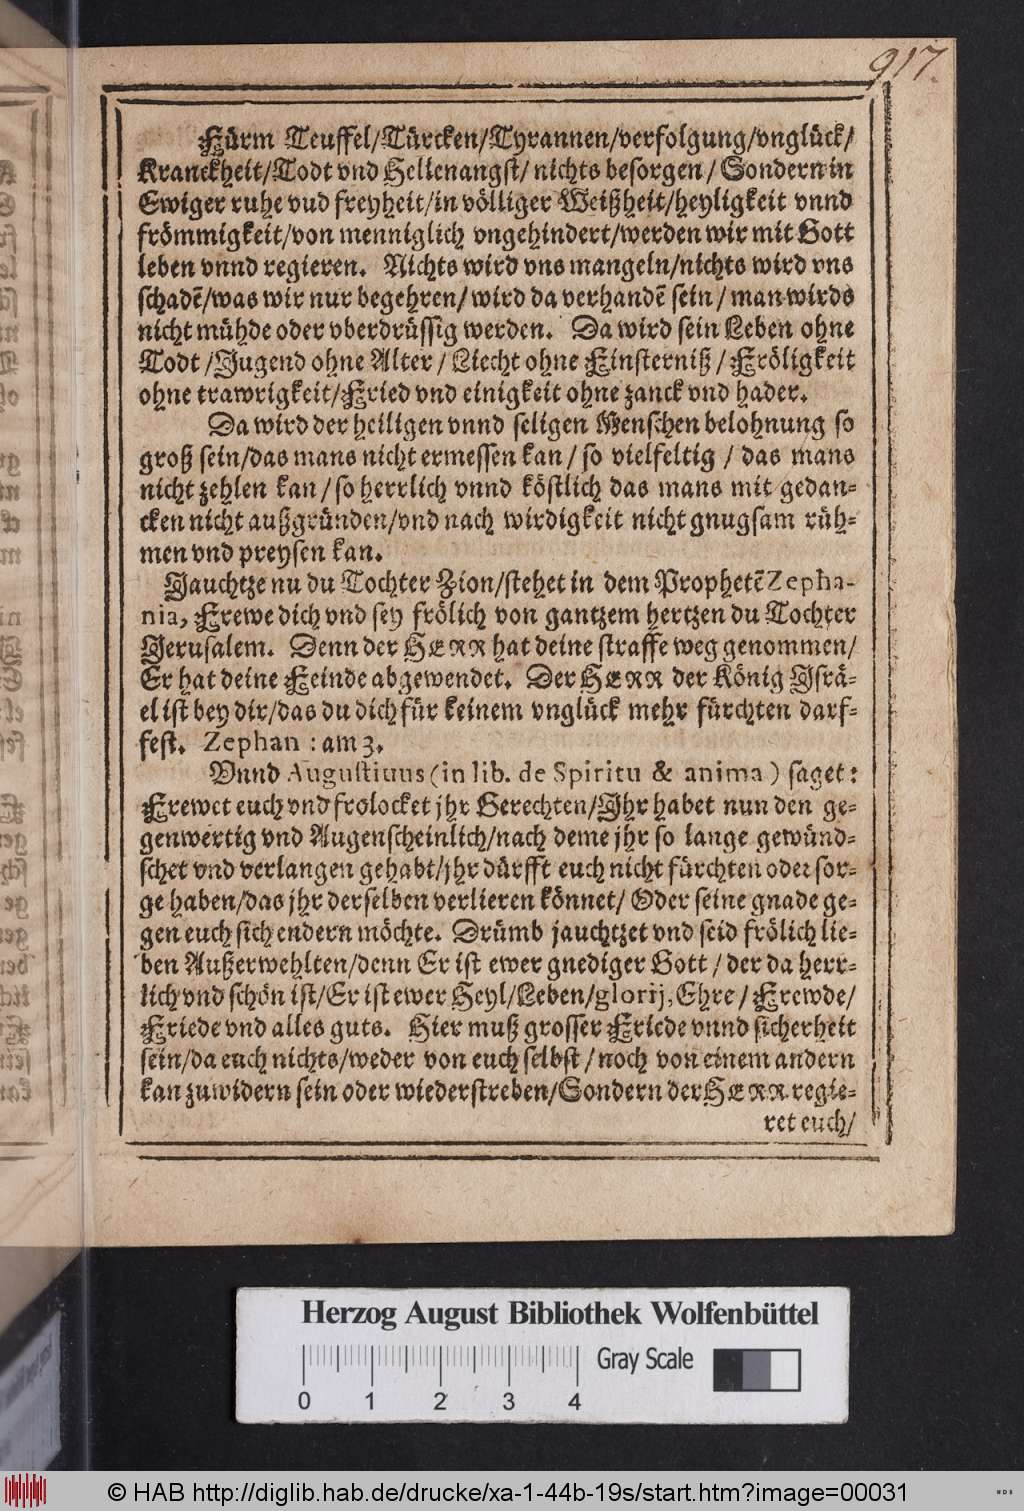 917.
Fürm Teuffel/Türcken/Tyrannen/verfolgung/vnglück/
Kranckheit/Todt vnd Hellenangst/ nichts besorgen / Sondern in
Ewiger ruhe vud freyheit/in völliger Weißheit/heyligkeit vnnd
frömmigkeit/von menniglich vngehindert/werden wir mit Gott
leben vnnd regieren. Nichts wird vns mangeln/nichts wird vns
schadē/was wir nur begehren/ wird da verhandē sein / man wirds
nicht mühde oder vberdrüssig werden. Da wird sein Leben ohne
Todt /Jugend ohne Alter / Liecht ohne Finsterniß / Fröligkeit
ohne trawrigkeit/Fried vnd einigkeit ohne zanck vnd hader.
Da wird der heiligen vnnd seligen Menschen belohnung so
groß sein/das mans nicht ermessen kan / so vielfeltig / das mans
nicht zehlen kan / so herrlich vnnd köstlich das mans mit gedan-
cken nicht außgründen/vnd nach wirdigkeit nicht gnugsam rüh-
men vnd preysen kan.
Jauchtze nu du Tochter Zion/stehet in dem Prophetē Zepha-
nia, Frewe dich vnd sey frölich von gantzem hertzen du Tochter
Jerusalem. Denn der HERR hat deine straffe weg genommen/
Er hat deine Feinde abgewendet. Der HERR der König Jsrä-
el ist bey dir/das du dich für keinem vnglück mehr fürchten darf-
fest. Zephan : am 3.
Vnnd Augustiuus (in lib. de Spiritu & anima) saget:
Frewet euch vnd frolocket jhr Gerechten/Jhr habet nun den ge-
genwertig vnd Augenscheinlich/nach deme jhr so lange gewünd-
schet vnd verlangen gehabt/jhr dürfft euch nicht fürchten oder sor-
ge haben/das jhr derselben verlieren könnet/ Oder seine gnade ge-
gen euch sich endern möchte. Drümb jauchtzet vnd seid frölich lie-
ben Außerwehlten/denn Er ist ewer gnediger Gott / der da herr-
lich vnd schön ist/Er ist ewer Heyl/Leben/glorij, Ehre / Frewde/
Friede vnd alles guts. Hier muß grosser Friede vnnd sicherheit
sein/da euch nichts/weder von euch selbst / noch von einem andern
kan zuwidern sein oder wiederstreben/Sondern der HERR regie-
ret euch/
Herzog August Bibliothek Wolfenbüttel
Gray Scale
0 1 2 3 4
© HAB http://diglib.hab.de/drucke/xa-1-44b-19s/start.htm?image=00031